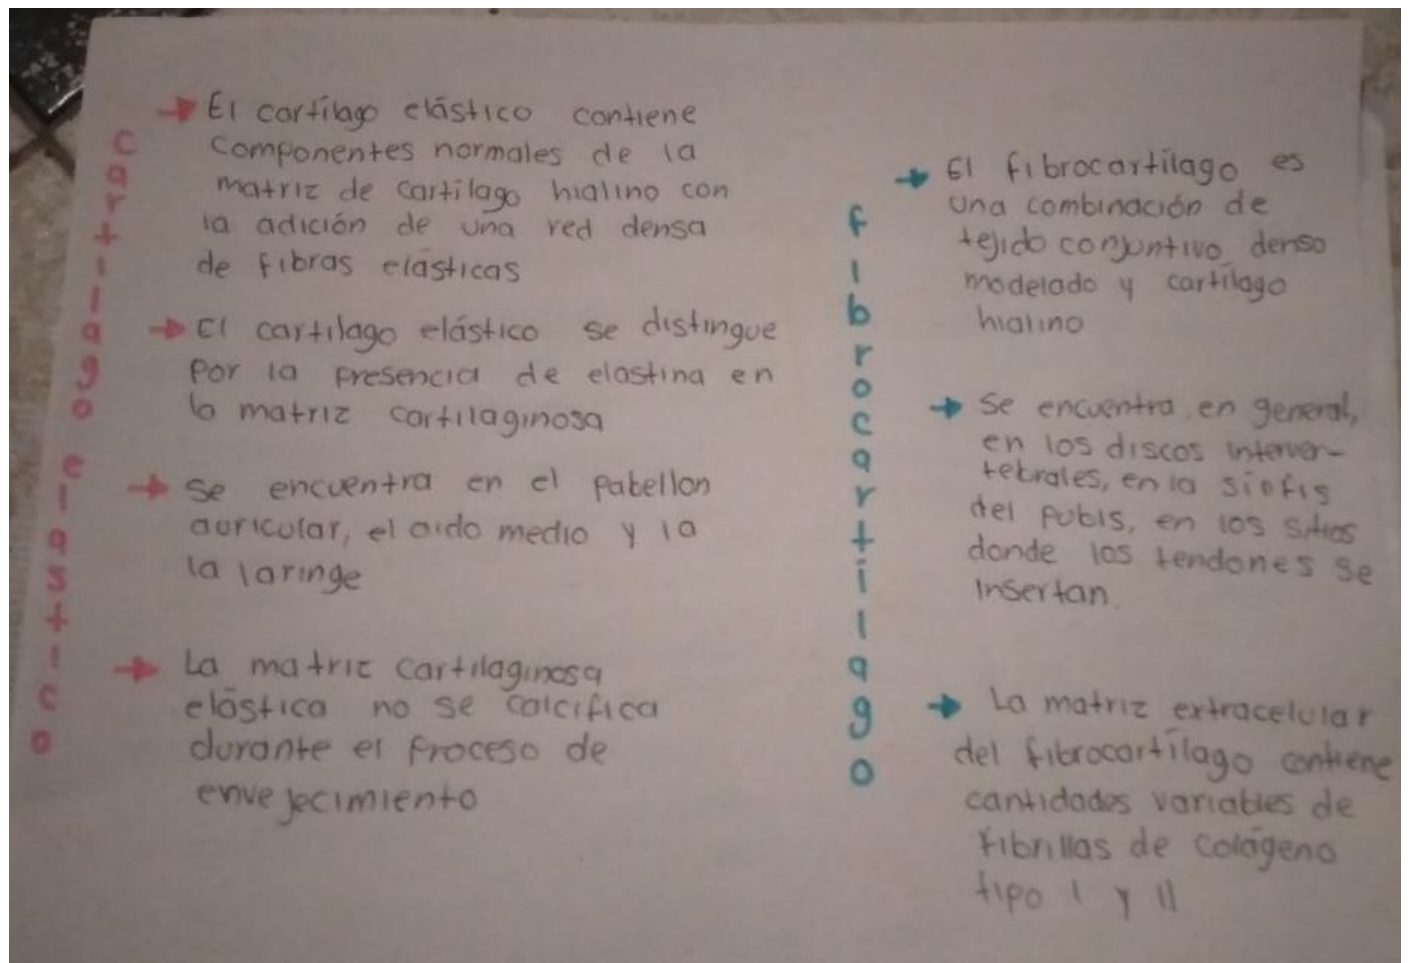 Cartilago elastico
→ El cartílago elástico contiene
componentes normales de la
matriz de cartílago hialino con
la adición de una red densa
de fibras elásticas
→ El cartilago elástico se distingue
por la presencia de elastina en
la matriz cartilaginosa
→ Se encuentra en el pabellon
auricular, el oido medio y la
la laringe
→ La matriz cartilaginosa
elástica no se calcifica
durante el proceso de
envejecimiento
fibrocartilago
→ El fibrocartilago es
una combinación de
tejido conjuntivo denso
modelado y cartílago
hialino
→ Se encuentra, en general,
en los discos interver-
tebrales, en la
del pubis, en los sitios
donde los tendones se
insertan.
→ La matriz extracelular
del fibrocartílago contiene
cantidades variables de
fibrillas de colágeno
tipo I y II